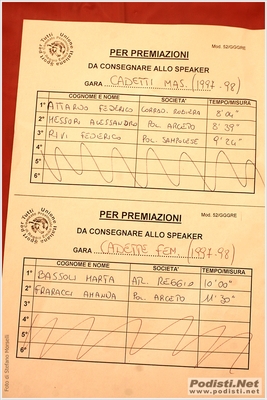 Unione Italiana
Sport per Tutti
Mod. 52/GGGRE
PER PREMIAZIONI
DA CONSEGNARE ALLO SPEAKER
GARA CADETTI MAS. (1997-98)
COGNOME E NOME SOCIETA' TEMPO/MISURA
1° ATTARDO FEDERICO CORRADO RUBIERA 8'04"
2° MESSORI ALESSANDRO POL. ARCETO 8'39"
3° RIVI FEDERICO POL. SAMPOLESE 9'24"
4°
5°
6°
Unione Italiana
Sport per Tutti
Mod. 52/GGGRE
PER PREMIAZIONI
DA CONSEGNARE ALLO SPEAKER
GARA CADETTE FEM. (1997-98)
COGNOME E NOME SOCIETA' TEMPO/MISURA
1° BASSOLI MARTA ATL. REGGIO 10'00"
2° FRARACCI AMANDA POL. ARCETO 11'30"
3°
4°
5°
6°
Foto di Stefano Morselli
Podisti.Net
www.podisti.net